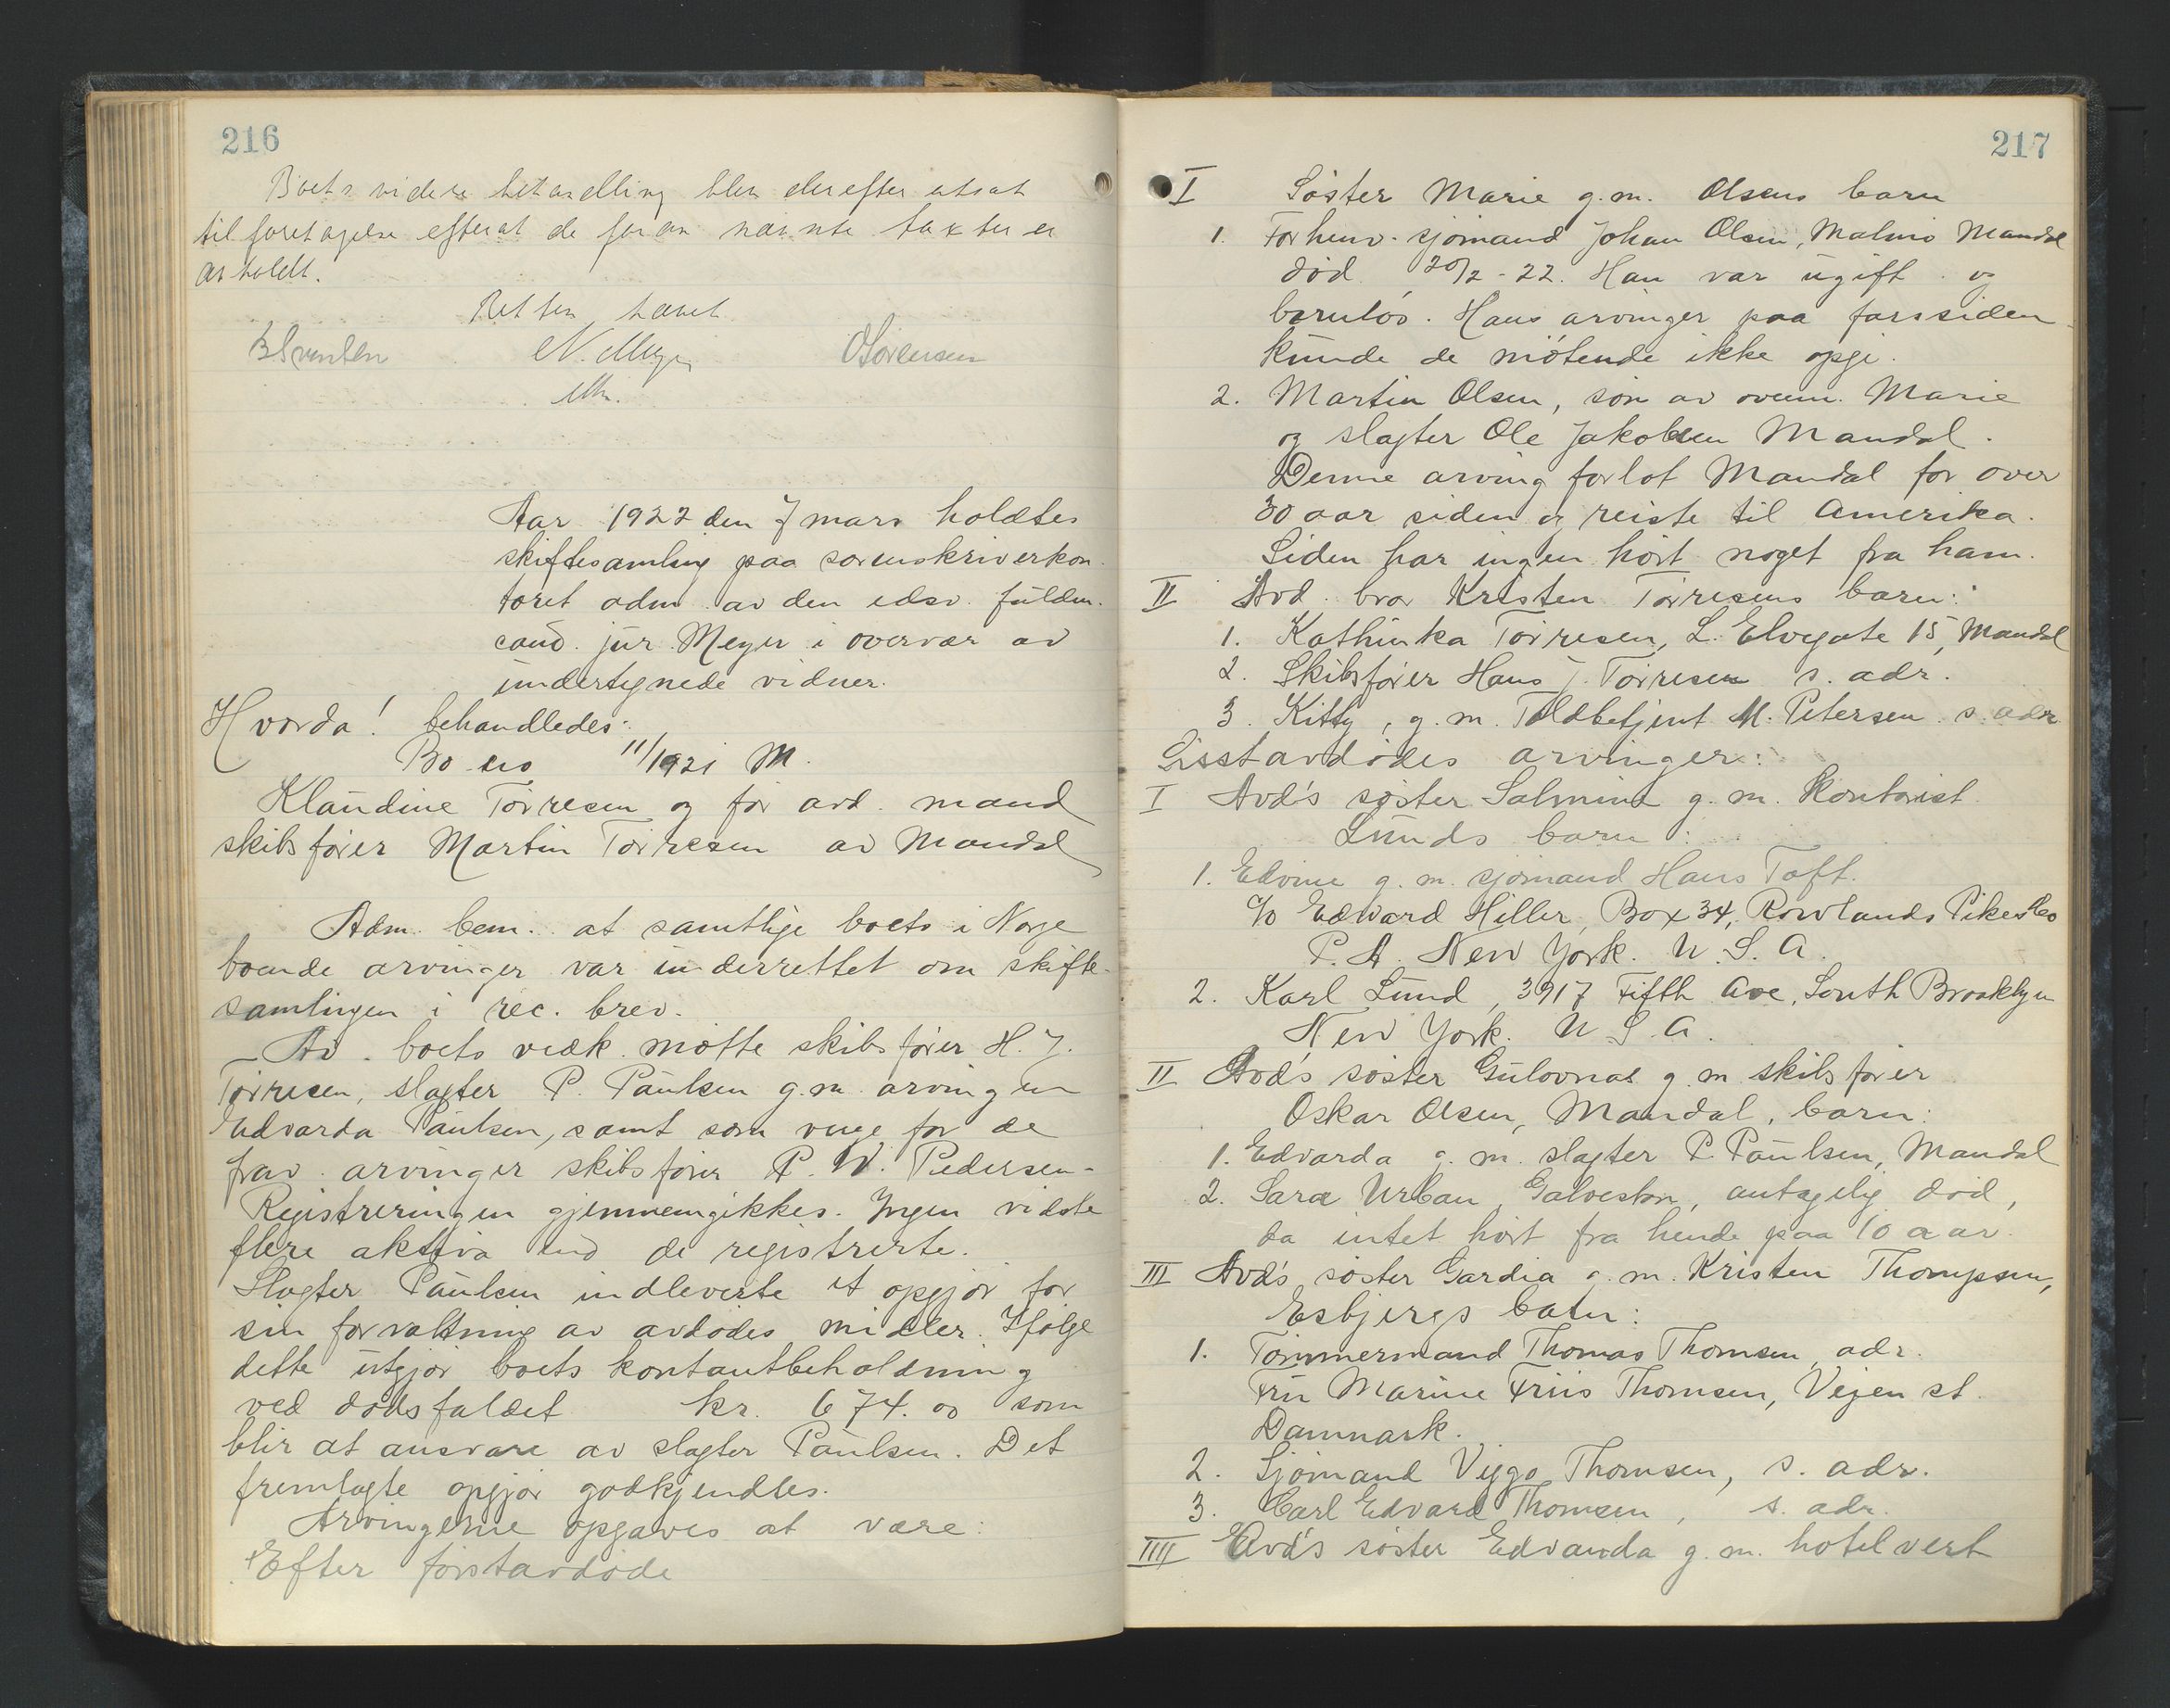 216
Boets videre behandling blev derefter utsat
til foretagelse efterat de foran nævnte takster er
avholdt.
Retten hævet
N. Meyer
OSørensen
Aar 1922 den 7 mars holdtes
skiftesamling paa sorenskriverkon-
toret adm. av den edsv. fuldm.
cand. jur. Meyer i overvær av
undertegnede vidner.
Hvorda! behandledes:
Bo no 11/1921 M.
Klaudine Tørresen og før avd. mand
skibsfører Martin Tørresen av Mandal
Adm. bem. at samtlige boets i Norge
boende arvinger var underrettet om skifte-
samlingen i rec. brev.
Av boets vedk. møtte skibsfører H. J.
Tørresen, slagter P. Paulsen g.m. arvingen
Edvarda Paulsen, samt som verge for de
frav. arvinger skibsfører P. W. Pedersen-
Registreringen gjennemgikkes. Ingen vidste
flere aktiva end de registrerte.
Slagter Paulsen indleverte et opgjør for
sin forvaltning av avdødes midler. Ifølge
dette utgjør boets kontantbeholdning
ved dødsfaldet kr. 674.00 som
blir at ansvare av slagter Paulsen. Det
fremlagte opgjør godkjendtes.
Arvingerne opgaves at være:
Efter førstavdøde
217
I Søster Marie g.m. Olsens barn
1. Forhenv. sjømand Johan Olsen, Malmø Mandal
død 20/2-22. Han var ugift og
barnløs. Hans arvinger paa farssiden
kunde de møtende ikke opgi.
2. Martin Olsen, søn av ovenn. Marie
og slagter Ole Jakobsen Mandal.
Denne arving forlot Mandal for over
30 aar siden og reiste til Amerika.
Siden har ingen hørt noget fra ham.
II Avd. bror Kristen Tørresens barn:
1. Kathinka Tørresen, L. Elvegate 15, Mandal
2. Skibsfører Hans J. Tørresen s. adr.
3. Kitty, g.m. Toldbetjent M. Petersen s. adr
Sisstavdødes arvinger:
I Avd's søster Salmina g.m. Kontorist
Lunds barn:
1. Edvine g.m. sjømand Hans Toft.
c/o Edward Hiller, Box 34, Rowlands Pikes Co
P.A. New York. U.S.A.
2. Karl Lund, 3917 Fifth Ave, South Brooklyn
New York. U.S.A.
II Avd's søster Gulovnas g.m. skibsfører
Oskar Olsen, Mandal, barn:
1. Edvarda g.m. slagter P. Paulsen, Mandal
2. Sara Urban, Galveston, antagelig død,
da intet hørt fra hende paa 10 aar.
III Avd's søster Gardia g.m. Kristen Thompsen,
Esbjergs barn:
1. Tømmermand Thomas Thomsen, adr.
Fru Marine Friis Thomsen, Vejen st.
Danmark.
2. Sjømand Viggo Thomsen, s. adr.
3. Carl Edvard Thomsen, s. adr.
IIII Avd's søster Edvarda g.m. hotelvert